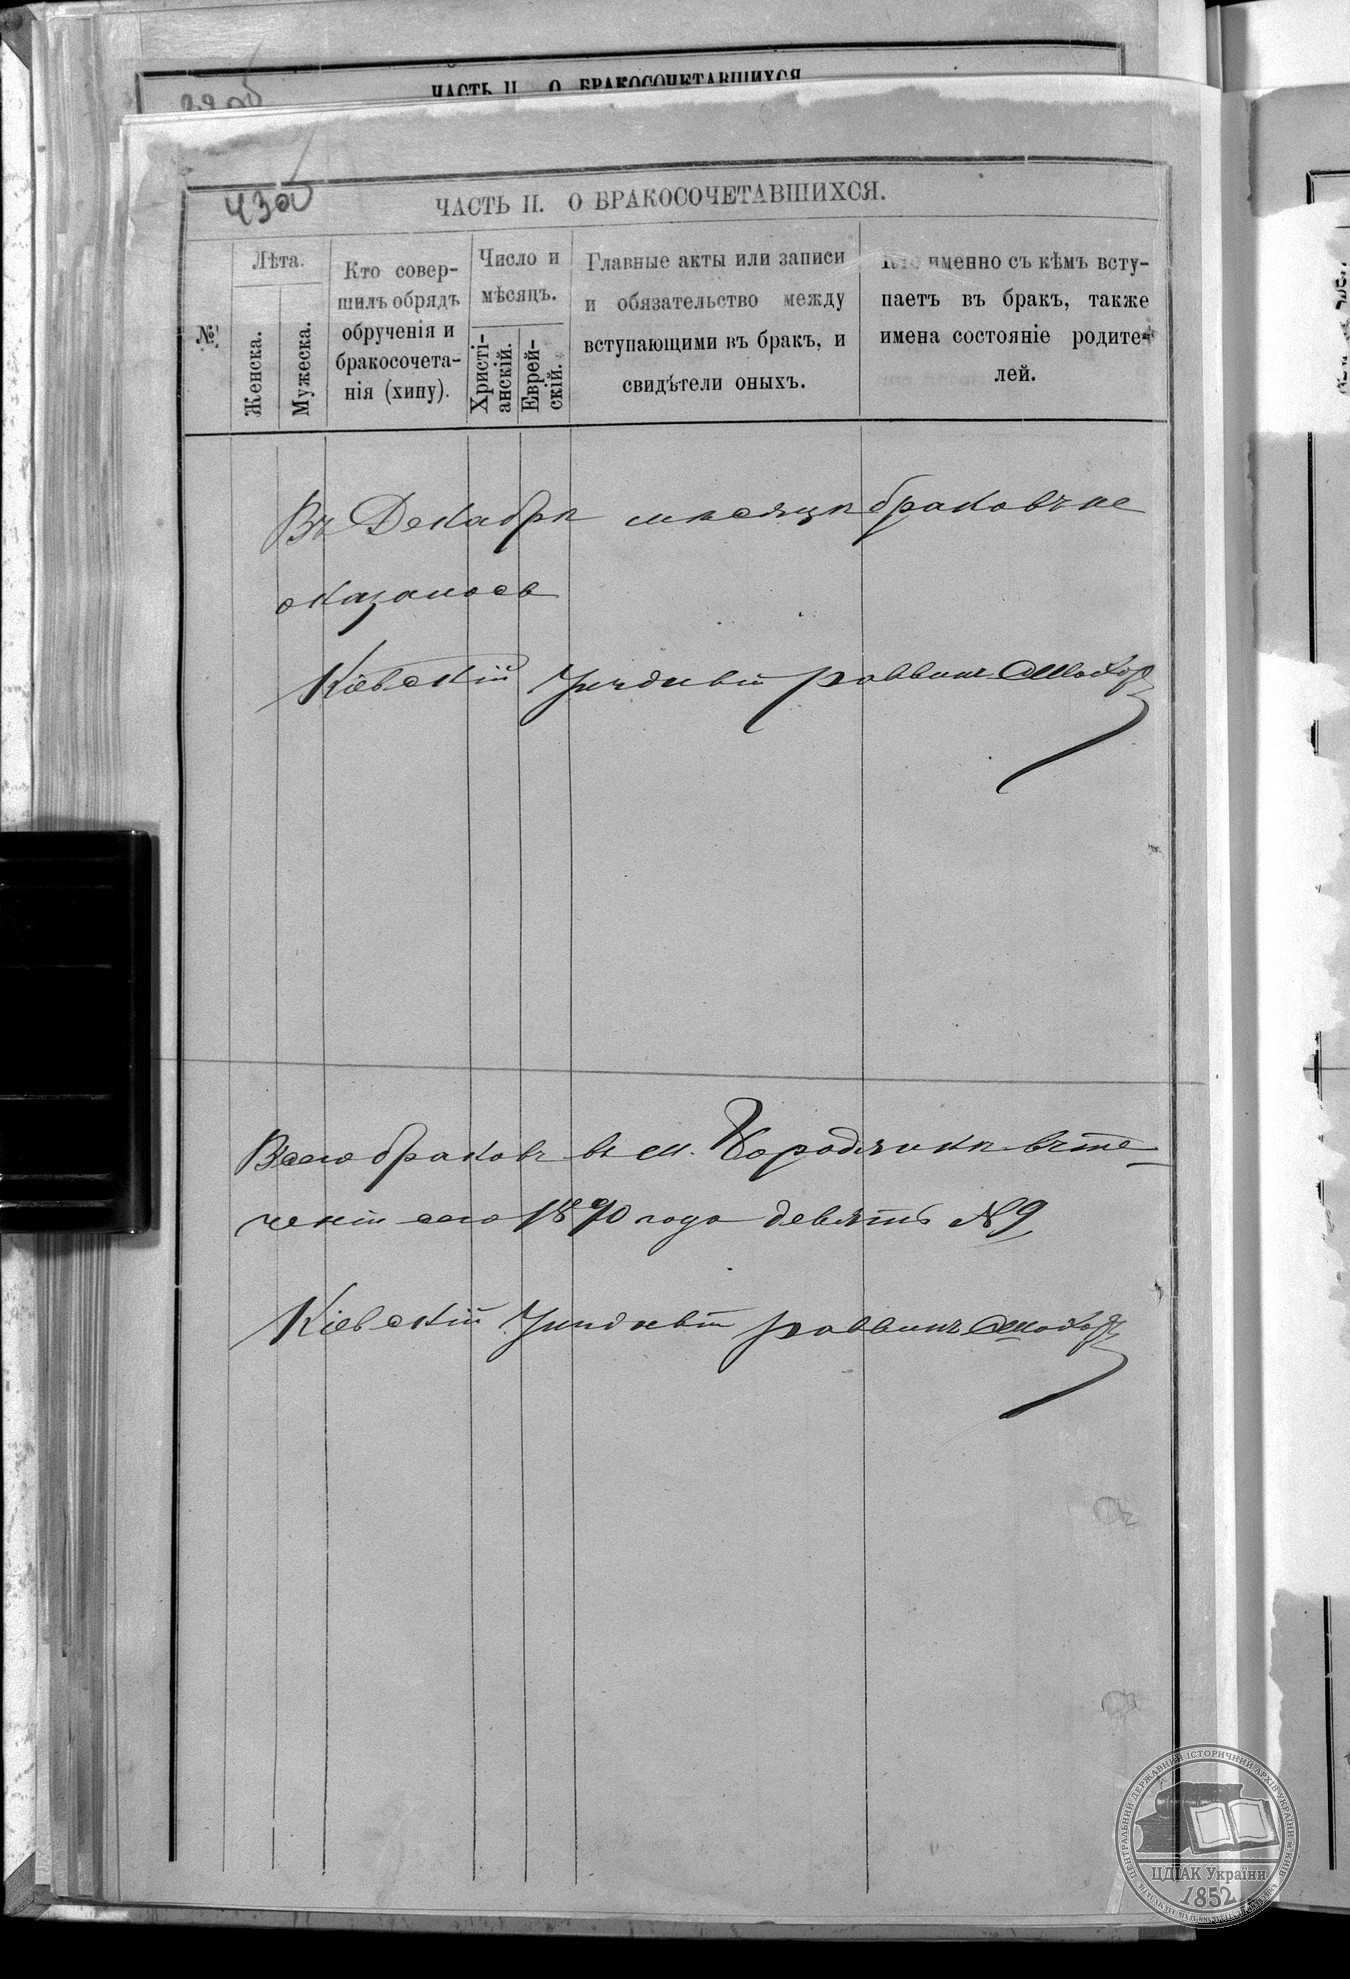 ЧАСТЬ II. О БРАКОСОЧЕТАВШИХСЯ
43об
ЧАСТЬ II. О БРАКОСОЧЕТАВШИХСЯ.
№
Лѣта.
Женска.
Мужеска.
Кто совер-
шилъ обрядъ
обрученія и
бракосочета-
нія (хипу).
Число и
мѣсяцъ.
Христі-
анскій.
Еврей-
скій.
Главные акты или записи
и обязательство между
вступающими въ бракъ, и
свидѣтели оныхъ.
Кто именно съ кѣмъ всту-
паетъ въ бракъ, также
имена состояніе родите-
лей.
Въ Декабрѣ мѣсяцѣ браковъ не
оказалось
Кіевскій Уѣздный раввинъ
Всего браковъ въ м. Бородянкѣ въ те-
ченіи сего 1890 года девять №9
Кіевскій Уѣздный раввинъ
ЦЕНТРАЛЬНИЙ ДЕРЖАВНИЙ ІСТОРИЧНИЙ АРХІВ УКРАЇНИ М. КИЇВ
ЦДІАК України
1852